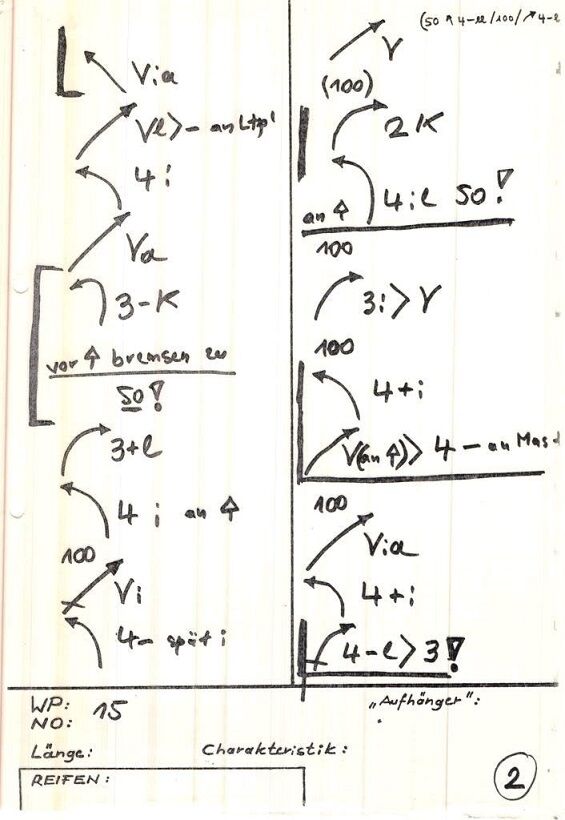 Via
Vl>- an Ltp'
4 i
Va
3-K
vor bremsen zu
50!
3+l
4 i an
100
Vi
4- spät i
V
(100)
2K
4il 50!
an
100
3i>V
100
4+i
V(an )> 4 - an
100
Via
4+i
4-l>3!
WP: 15
NO:
"Aufhänger":
Länge: Charakteristik:
REIFEN:
2